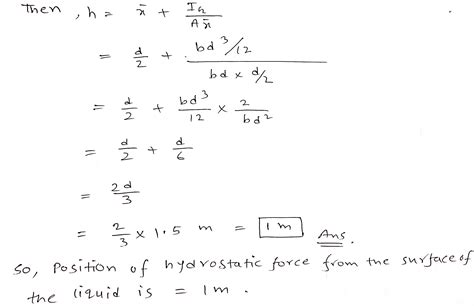 Then, h = x̄ + I_G / A x̄
= d/2 + (bd³/12) / (bd × d/2)
= d/2 + bd³/12 × 2/bd²
= d/2 + d/6
= 2d/3
= 2/3 × 1.5 m = 1 m Ans.
So, Position of hydrostatic force from the surface of
the liquid is = 1m.